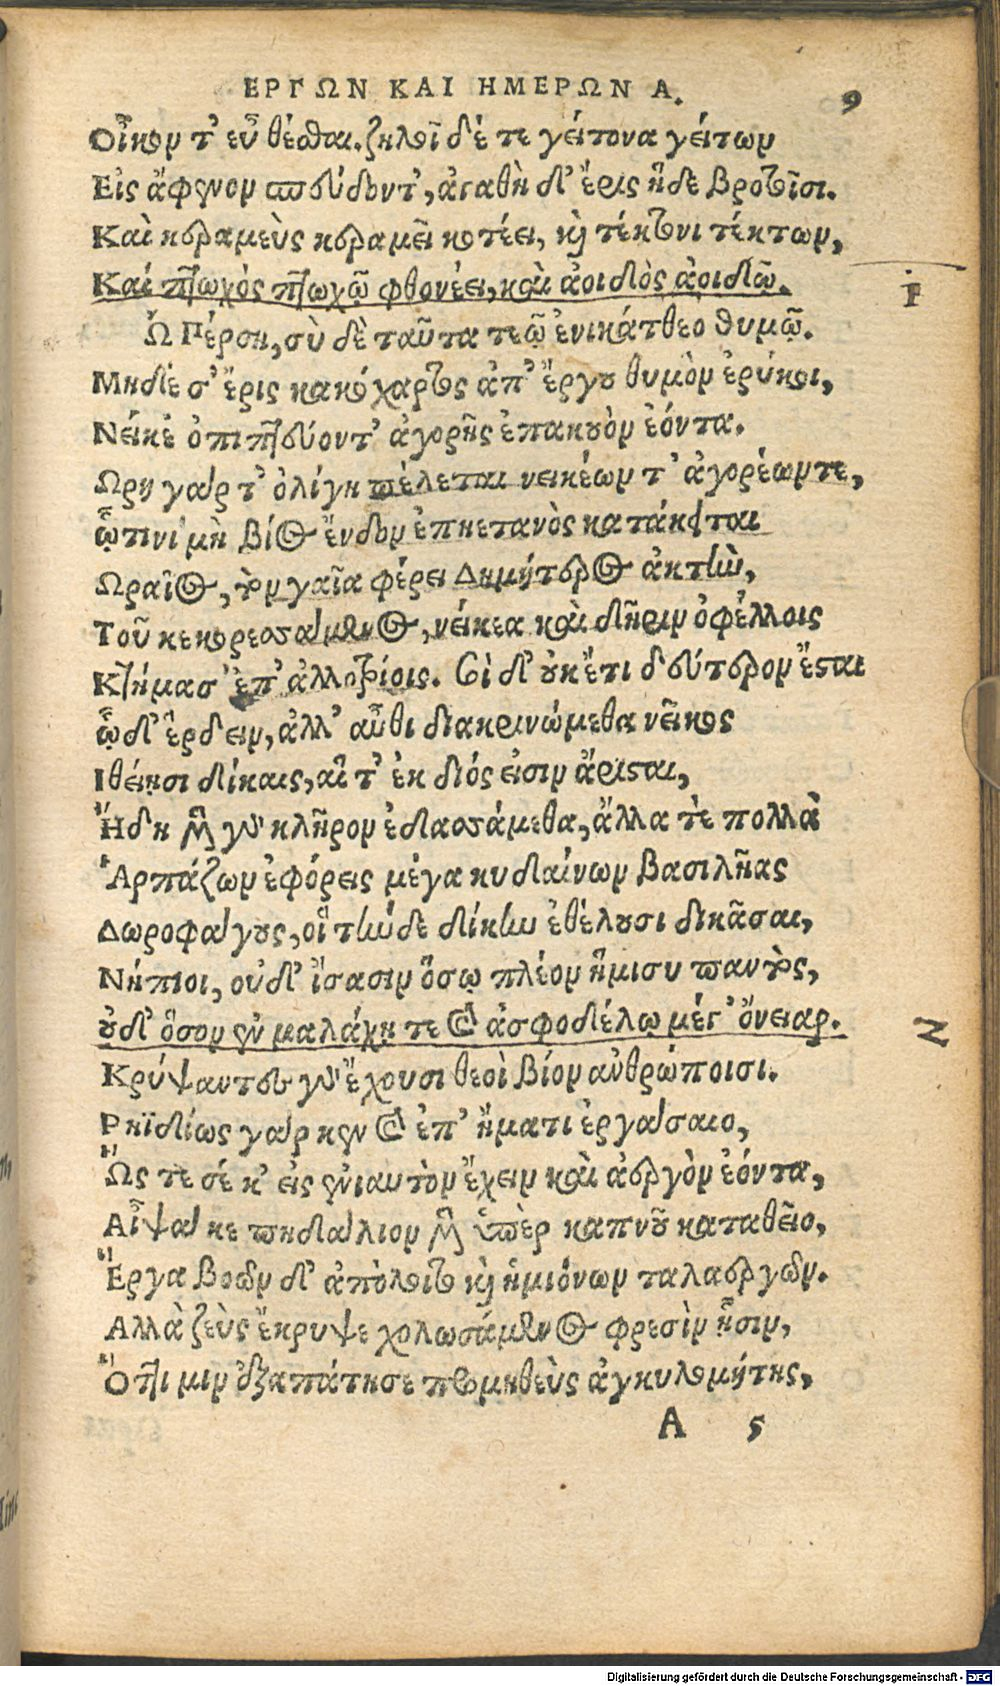 ΕΡΓΩΝ ΚΑΙ ΗΜΕΡΩΝ Α. 9
Οἶκον τ' εὖ θέσθαι. ζηλοῖ δέ τε γείτονα γείτων
Εἰς ἄφενον σπεύδοντ', ἀγαθὴ δ' ἔρις ἥδε βροτοῖσι.
Καὶ κεραμεὺς κεραμεῖ κοτέει, καὶ τέκτονι τέκτων,
Καὶ πτωχὸς πτωχῷ φθονέει, καὶ ἀοιδὸς ἀοιδῷ.
Ὦ Πέρση, σὺ δὲ ταῦτα τεῷ ἐνικάτθεο θυμῷ.
Μηδέ σ' ἔρις κακόχαρτος ἀπ' ἔργου θυμὸν ἐρύκοι,
Νείκε' ὀπιπτεύοντ' ἀγορῆς ἐπακουὸν ἐόντα.
Ὤρη γάρ τ' ὀλίγη πέλεται νεικέων τ' ἀγορέων τε,
ᾧτινι μὴ βίος ἔνδον ἐπηετανὸς κατάκειται
Ὡραῖος, τὸν γαῖα φέρει Δημήτερος ἀκτὴν,
Τοῦ κε κορεσσάμενος, νείκεα καὶ δῆριν ὀφέλλοις
Κτήμασ' ἐπ' ἀλλοτρίοις. σοὶ δ' οὐκέτι δεύτερον ἔσται
ᾧδ' ἔρδειν, ἀλλ' αὖθι διακρινώμεθα νεῖκος
Ἰθείῃσι δίκαις, αἵ τ' ἐκ διός εἰσιν ἄρισται,
Ἤδη μὲν γὰρ κλῆρον ἐδασσάμεθα, ἄλλα τὲ πολλὰ
Ἁρπάζων ἐφόρεις μέγα κυδαίνων βασιλῆας
Δωροφάγους, οἳ τήνδε δίκην ἐθέλουσι δικᾶσαι,
Νήπιοι, οὐδ' ἴσασιν ὅσῳ πλέον ἥμισυ παντὸς,
οὐδ' ὅσον ἐν μαλάχῃ τε καὶ ἀσφοδέλῳ μέγ' ὄνειαρ.
Κρύψαντες γὰρ ἔχουσι θεοὶ βίον ἀνθρώποισι.
Ρηϊδίως γάρ κεν καὶ ἐπ' ἤματι ἐργάσαιο,
Ὥς τε σέ κ' εἰς ἐνιαυτὸν ἔχειν καὶ ἀεργὸν ἐόντα,
Αἶψά κε πηδάλιον μὲν ὑπὲρ καπνοῦ καταθεῖο,
Ἔργα βοῶν δ' ἀπόλοιτο καὶ ἡμιόνων ταλαεργῶν.
Αλλὰ ζεὺς ἔκρυψε χολωσάμενος φρεσὶν ᾗσιν,
Ὅττι μιν ἐξαπάτησε προμηθεὺς ἀγκυλομήτης,
A 5
Digitalisierung gefördert durch die Deutsche Forschungsgemeinschaft - DFG